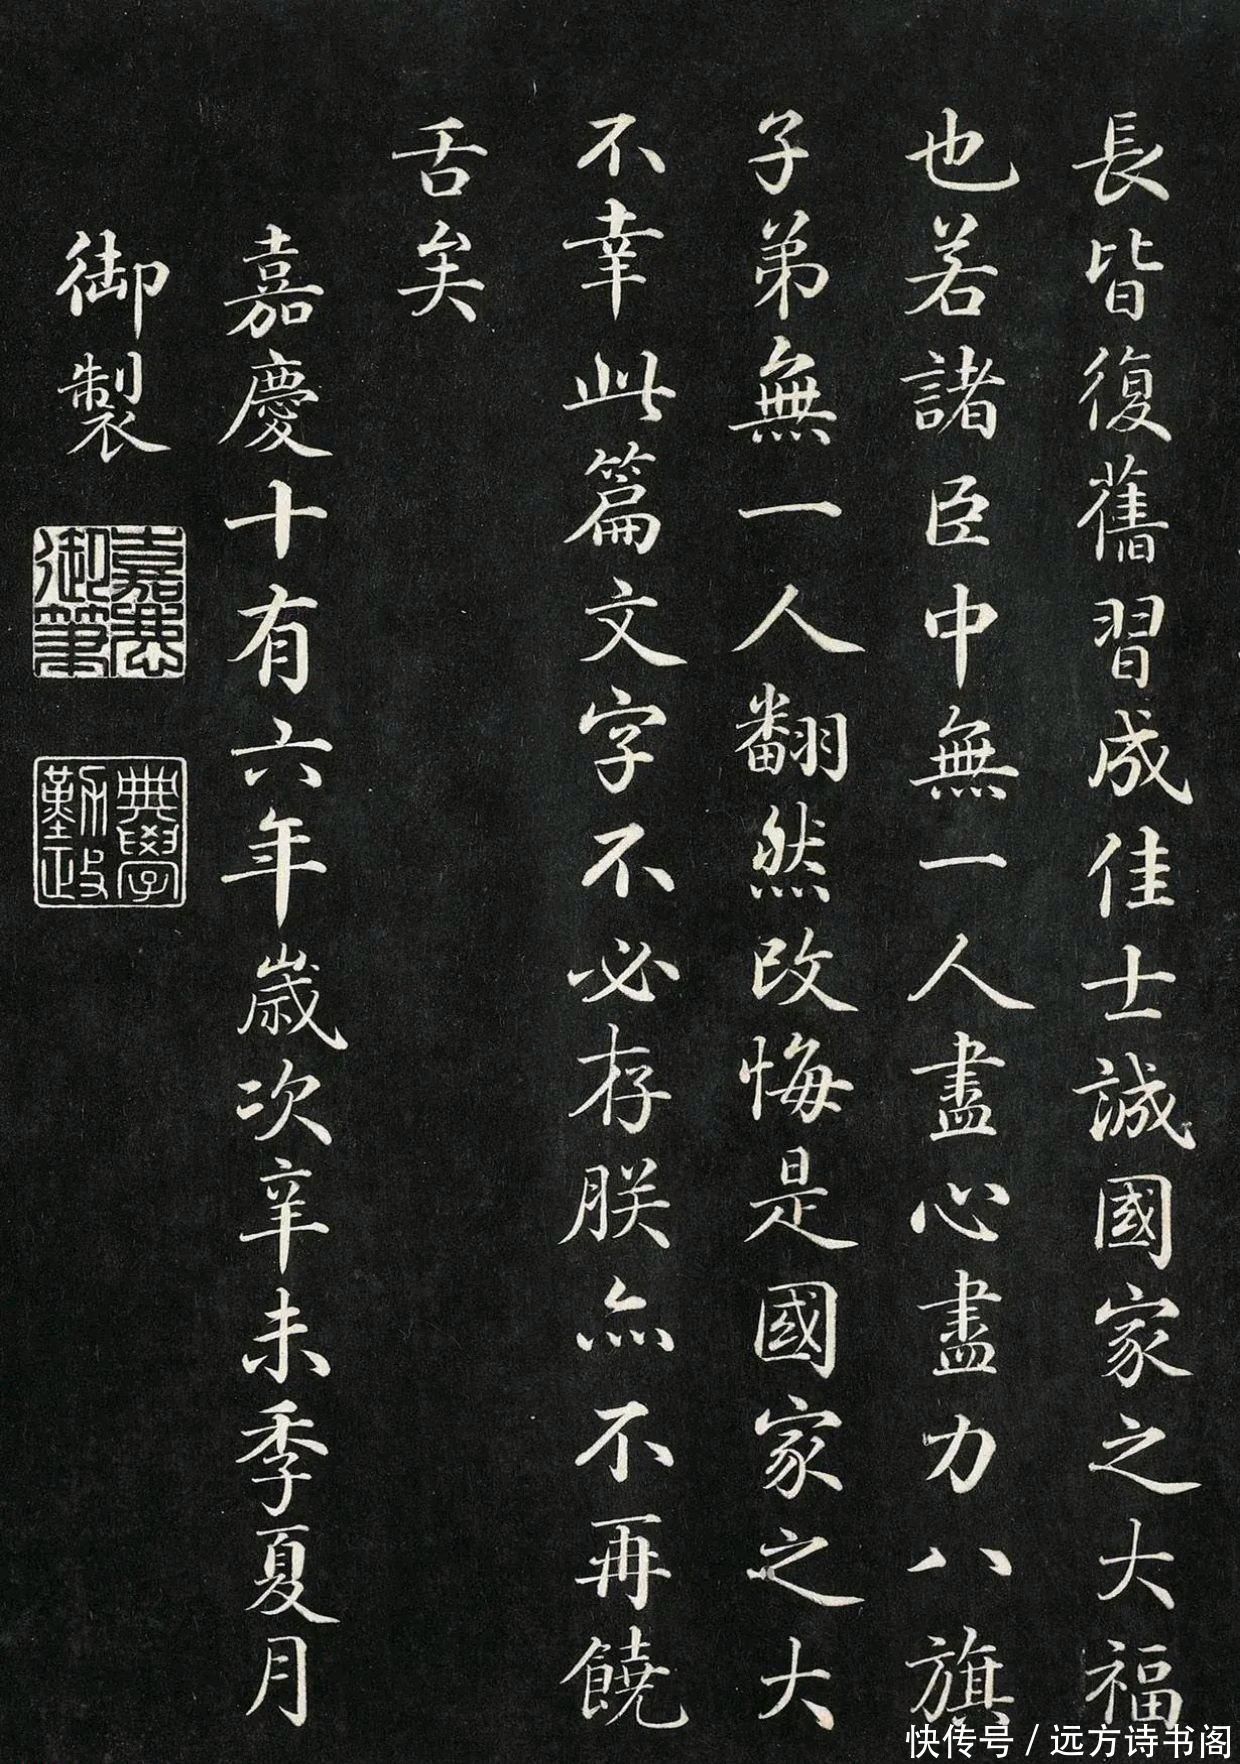 長皆復舊習成佳士誠國家之大福
也若諸臣中無一人盡心盡力八旗
子弟無一人翻然改悔是國家之大
不幸此篇文字不必存朕亦不再饒
舌矣
嘉慶十有六年歲次辛未季夏月
御製
嘉慶御筆
典學勤政
快传号/远方诗书阁